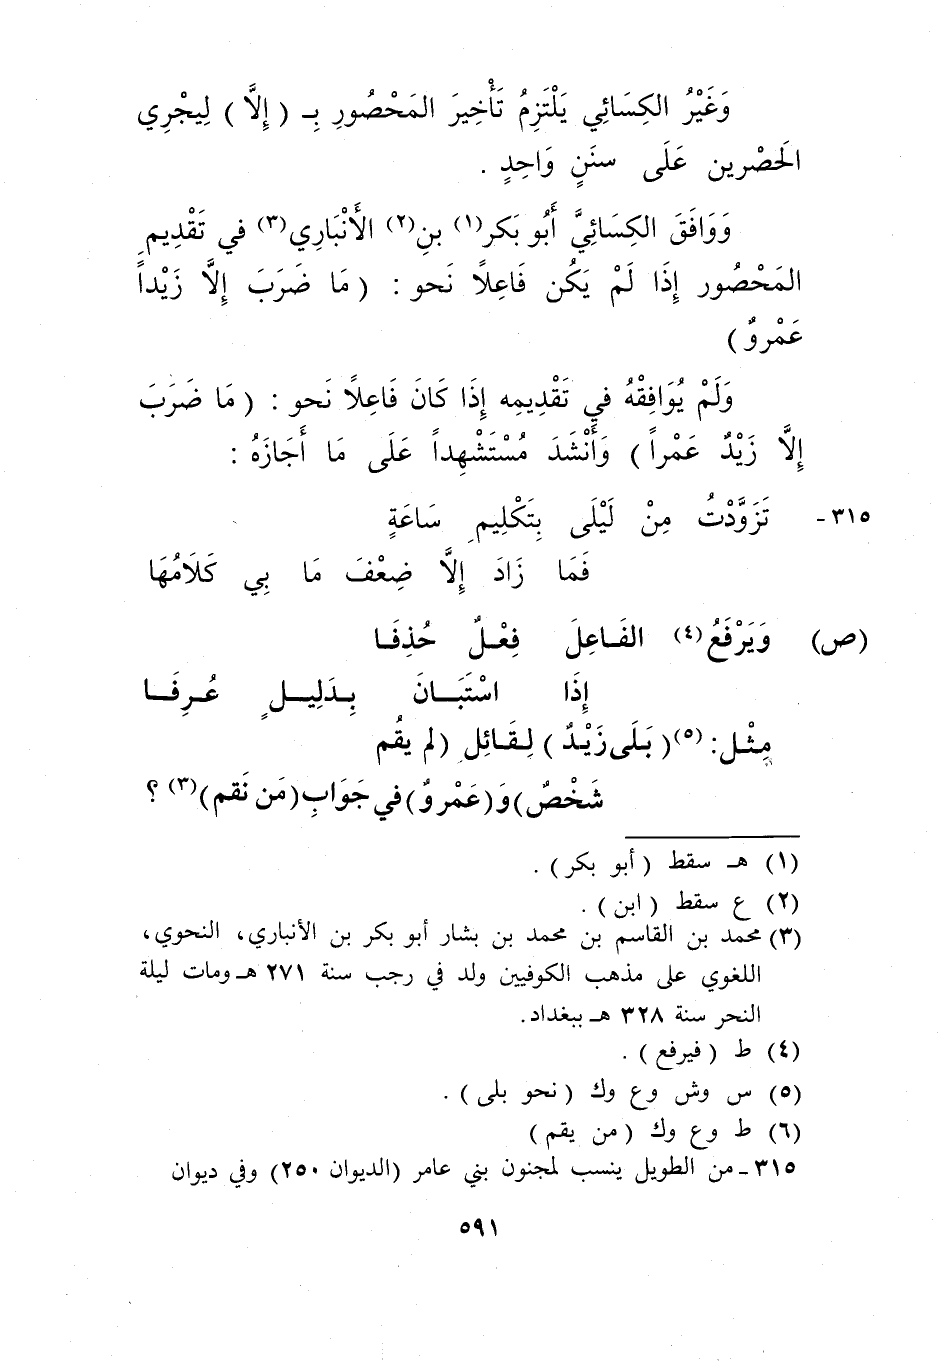 وَغَيْرُ الكِسَائِي يَلْتَزِمُ تَأْخِيرَ المَحْصُورِ بِـ ( إِلَّا ) لِيجْرِي
الحَصْرين عَلَى سنَنٍ وَاحِدٍ .
وَوَافَقَ الكِسَائِيَّ أَبُو بَكر(١) بنِ(٢) الأَنْبَارِي(٣) في تَقْدِيمِ
المَحْصُور إِذَا لَمْ يَكُن فَاعِلًا نَحو : ( مَا ضَرَبَ إِلَّا زَيْداً
عَمْروٌ )
وَلَمْ يُوَافِقْهُ في تَقْدِيمِه إِذَا كَانَ فَاعِلًا نَحو : ( مَا ضَرَبَ
إِلَّا زَيْدٌ عَمْراً ) وَأَنْشَدَ مُسْتَشْهِداً عَلَى مَا أَجَازَهُ :
٣١٥ - تَزَوَّدْتُ مِنْ لَيْلَى بِتَكْلِيمِ سَاعَةٍ
فَمَا زَادَ إِلَّا ضِعْفَ مَا بِي كَلَامُهَا
(ص) وَيَرْفَعُ(٤) الفَاعِلَ فِعْلٌ حُذِفَا
إِذَا اسْتَبَـانَ بِـدَلِيـلٍ عُـرِفَـا
مِثْـل: (٥)( بَـلَى زَيْـدٌ ) لِـقَـائِلِ (لم يقُم
شَخْصٌ) وَ(عَمْروٌ) في جَوَابِ (مَن نَقم)(٣) ؟
(١) هـ سقط ( أبو بكر ) .
(٢) ع سقط ( ابن ) .
(٣) محمد بن القاسم بن محمد بن بشار أبو بكر بن الأنباري، النحوي،
اللغوي على مذهب الكوفيين ولد في رجب سنة ٢٧١ هـ ومات ليلة
النحر سنة ٣٢٨ هـ ببغداد.
(٤) ط ( فيرفع ) .
(٥) س وش وع وك ( نحو بلى ) .
(٦) ط وع وك ( من يقم )
٣١٥ - من الطويل ينسب لمجنون بني عامر (الديوان ٢٥٠) وفي ديوان
٥٩١